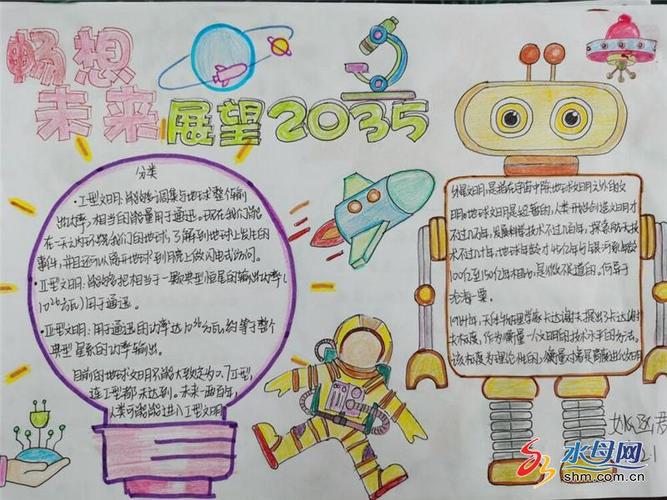 畅想
未来 展望2035
分类
·I型文明:能够调集与地球整个输
出功率,相当的能量用于通迅。现在我们能
在一天内环绕我们的地球,了解到地球上发生的
事件,并且还可从离开地球到月球上做闪电式访问。
·II型文明:能够把相当于一颗典型恒星的输出功率(
10²⁶瓦)用于通迅
·III型文明:用于通迅的功率达10³⁶瓦,约等于整个
典型星系的功率输出。
目前的地球文明只能大致定为0.7I型,
连I型都未达到。未来一两百年,
人类可能能进入I型文明
外星文明,是指在宇宙中除地球文明之外的文
明。地球文明是短暂的,人类开始创造文明才
不过几万年,发展科学技术不过几百年,探索航天
技术不过几十年,地球年龄才45亿年与银河系年龄
100亿至150亿年相比,是微不足道的。何异于
沧海一粟。
天体物理学家卡达谢夫,提出了卡达谢
夫标度,作为衡量一个文明的技术水平的方法。
该标度为理论性的,
水母网
shm.com.cn